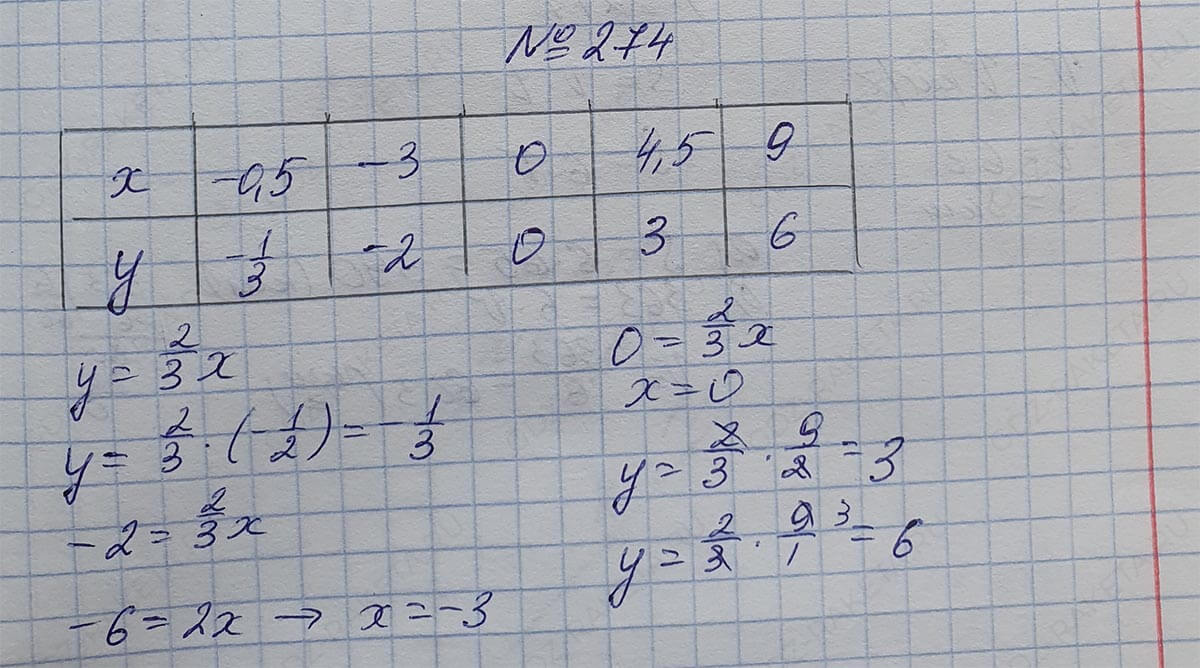 № 274
x -0,5 -3 0 4,5 9
y -1/3 -2 0 3 6
y = 2/3 x
y = 2/3 · (-1/2) = -1/3
-2 = 2/3 x
-6 = 2x → x = -3
0 = 2/3 x
x = 0
y = 2/3 · 9/2 = 3
y = 2/3 · 9/1 3 = 6